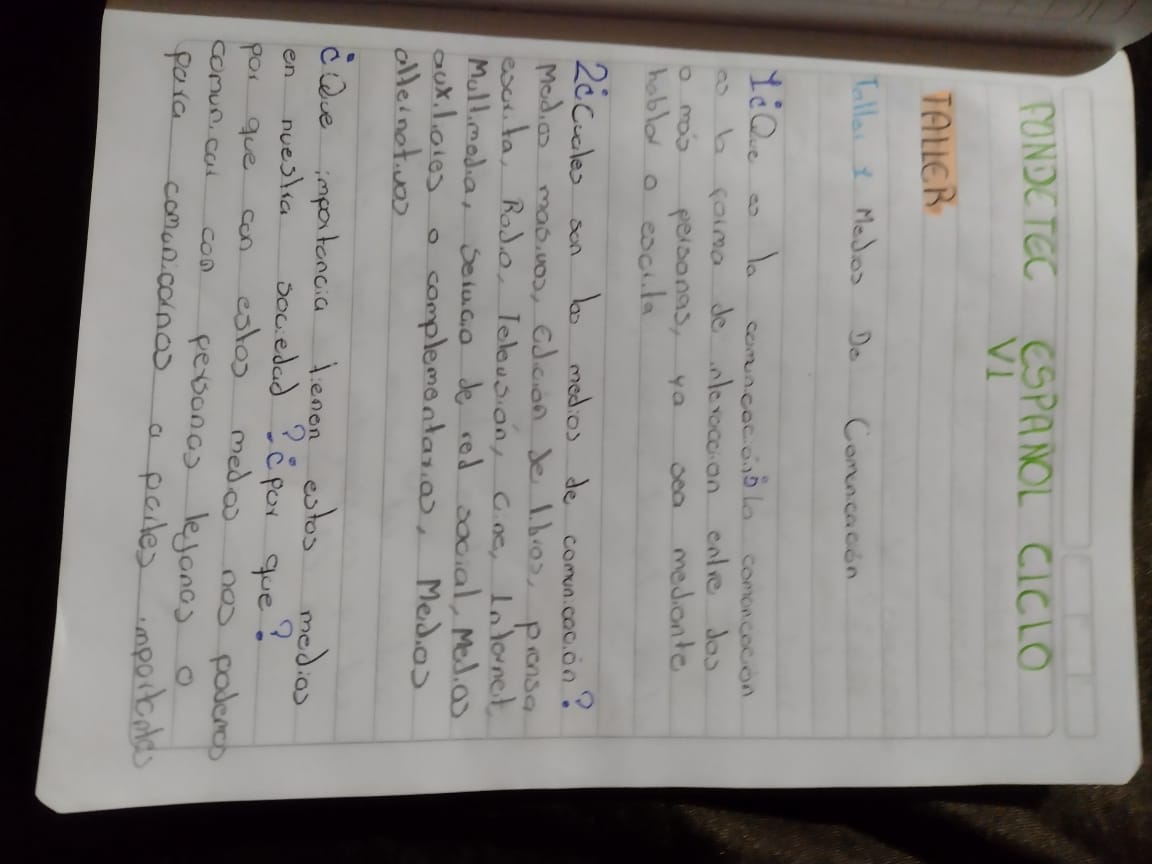 FONDETEC ESPAÑOL CICLO
VI
TALLER
Taller 1 Medios De Comunicación
1¿Que es la comunicación? la comunicación
es la forma de interaccion entre dos
o más personas, ya sea mediante
hablar o escrita
2¿Cuales son los medios de comunicación?
Medios masivos, Edición de libros, prensa
escrita, Radio, Television, cine, Internet,
Multimedia, servicio de red social, Medios
auxiliares o complementarios, Medios
alternativos
¿Que importancia tienen estos medios
en nuestra sociedad? ¿por que?
por que con estos medios nos podemos
comunicar con personas lejanas o
para comunicarnos a partes importantes